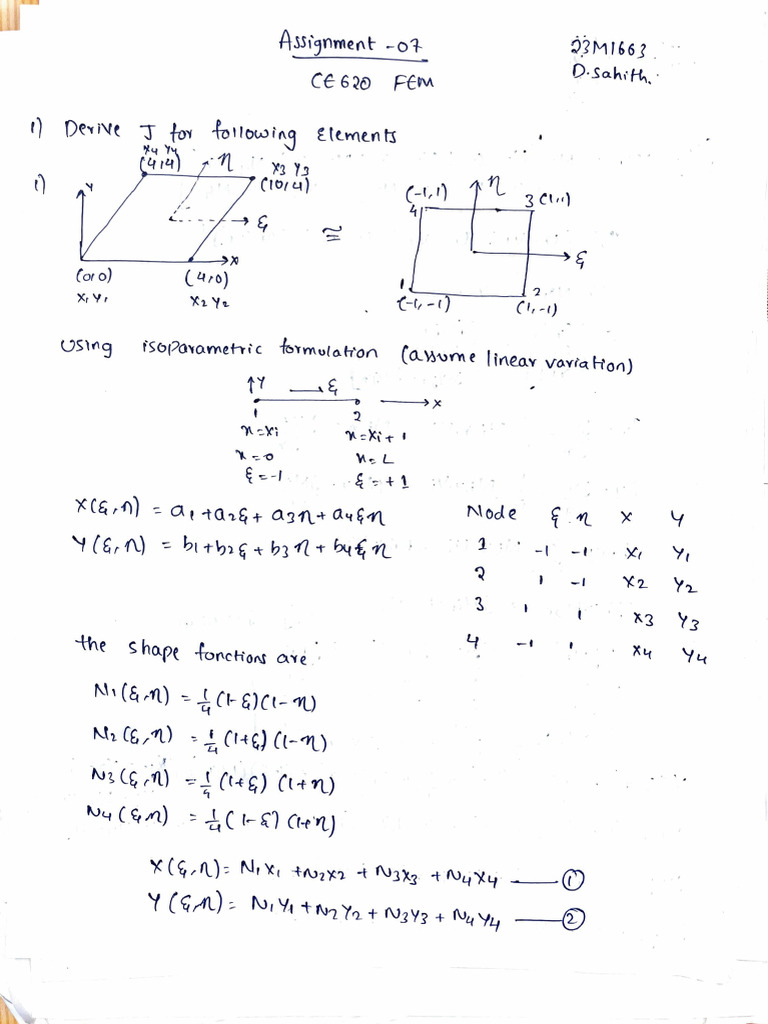 Assignment -07
23M1663
CE 620 FEM
D.Sahith.
1) Derive J for following Elements
X4 Y4
(4,4)
η
X3 Y3
(10,4)
i)
Y
ξ
X
(0,0)
(4,0)
X1 Y1
X2 Y2
≅
(-1,1)
η
4
3 (1,1)
ξ
1
2
(-1,-1)
(1,-1)
Using isoparametric formulation (assume linear variation)
↑Y → ξ
→ X
1 2
x=Xi x=Xi+1
x=0 x=L
ξ=-1 ξ=+1
X(ξ,η) = a1+a2ξ+ a3η+a4ξη
Y(ξ,η) = b1+b2ξ+b3η+b4ξη
Node ξ η X Y
1 -1 -1 X1 Y1
2 1 -1 X2 Y2
3 1 1 X3 Y3
4 -1 1 X4 Y4
the shape fonctions are
N1(ξ,η) = 1/4 (1-ξ)(1-η)
N2(ξ,η) = 1/4 (1+ξ)(1-η)
N3(ξ,η) = 1/4 (1+ξ)(1+η)
N4(ξ,η) = 1/4 (1-ξ)(1+η)
X(ξ,η) = N1X1 +N2X2 + N3X3 + N4X4 — ①
Y(ξ,η) = N1Y1 +N2Y2 + N3Y3 + N4Y4 — ②